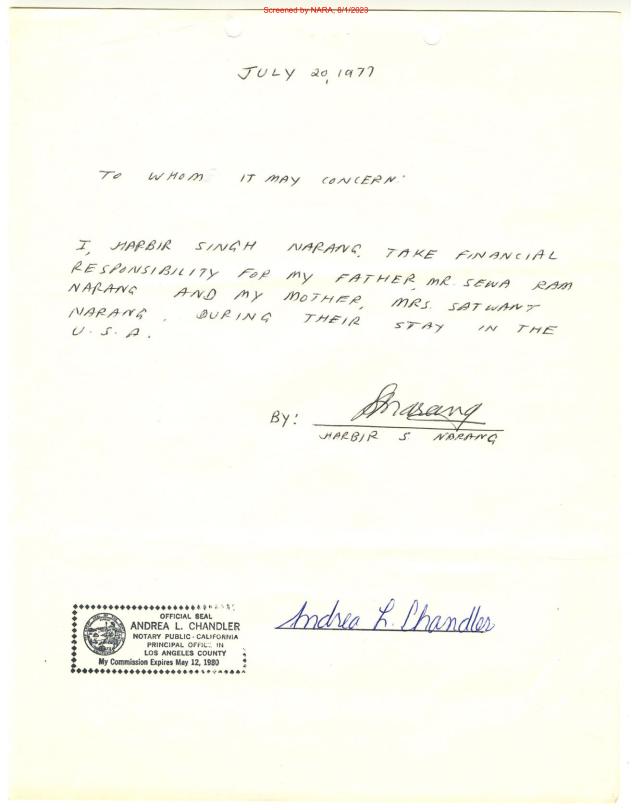 Screened by NARA, 8/1/2023
JULY 20, 1977
TO WHOM IT MAY CONCERN:
I, HARBIR SINGH NARANG, TAKE FINANCIAL
RESPONSIBILITY FOR MY FATHER, MR. SEWA RAM
NARANG AND MY MOTHER, MRS. SATWANT
NARANG, DURING THEIR STAY IN THE
U.S.A.
By: HSNarang
HARBIR S. NARANG
OFFICIAL SEAL
ANDREA L. CHANDLER
NOTARY PUBLIC - CALIFORNIA
PRINCIPAL OFFICE IN
LOS ANGELES COUNTY
My Commission Expires May 12, 1980
Andrea L. Chandler